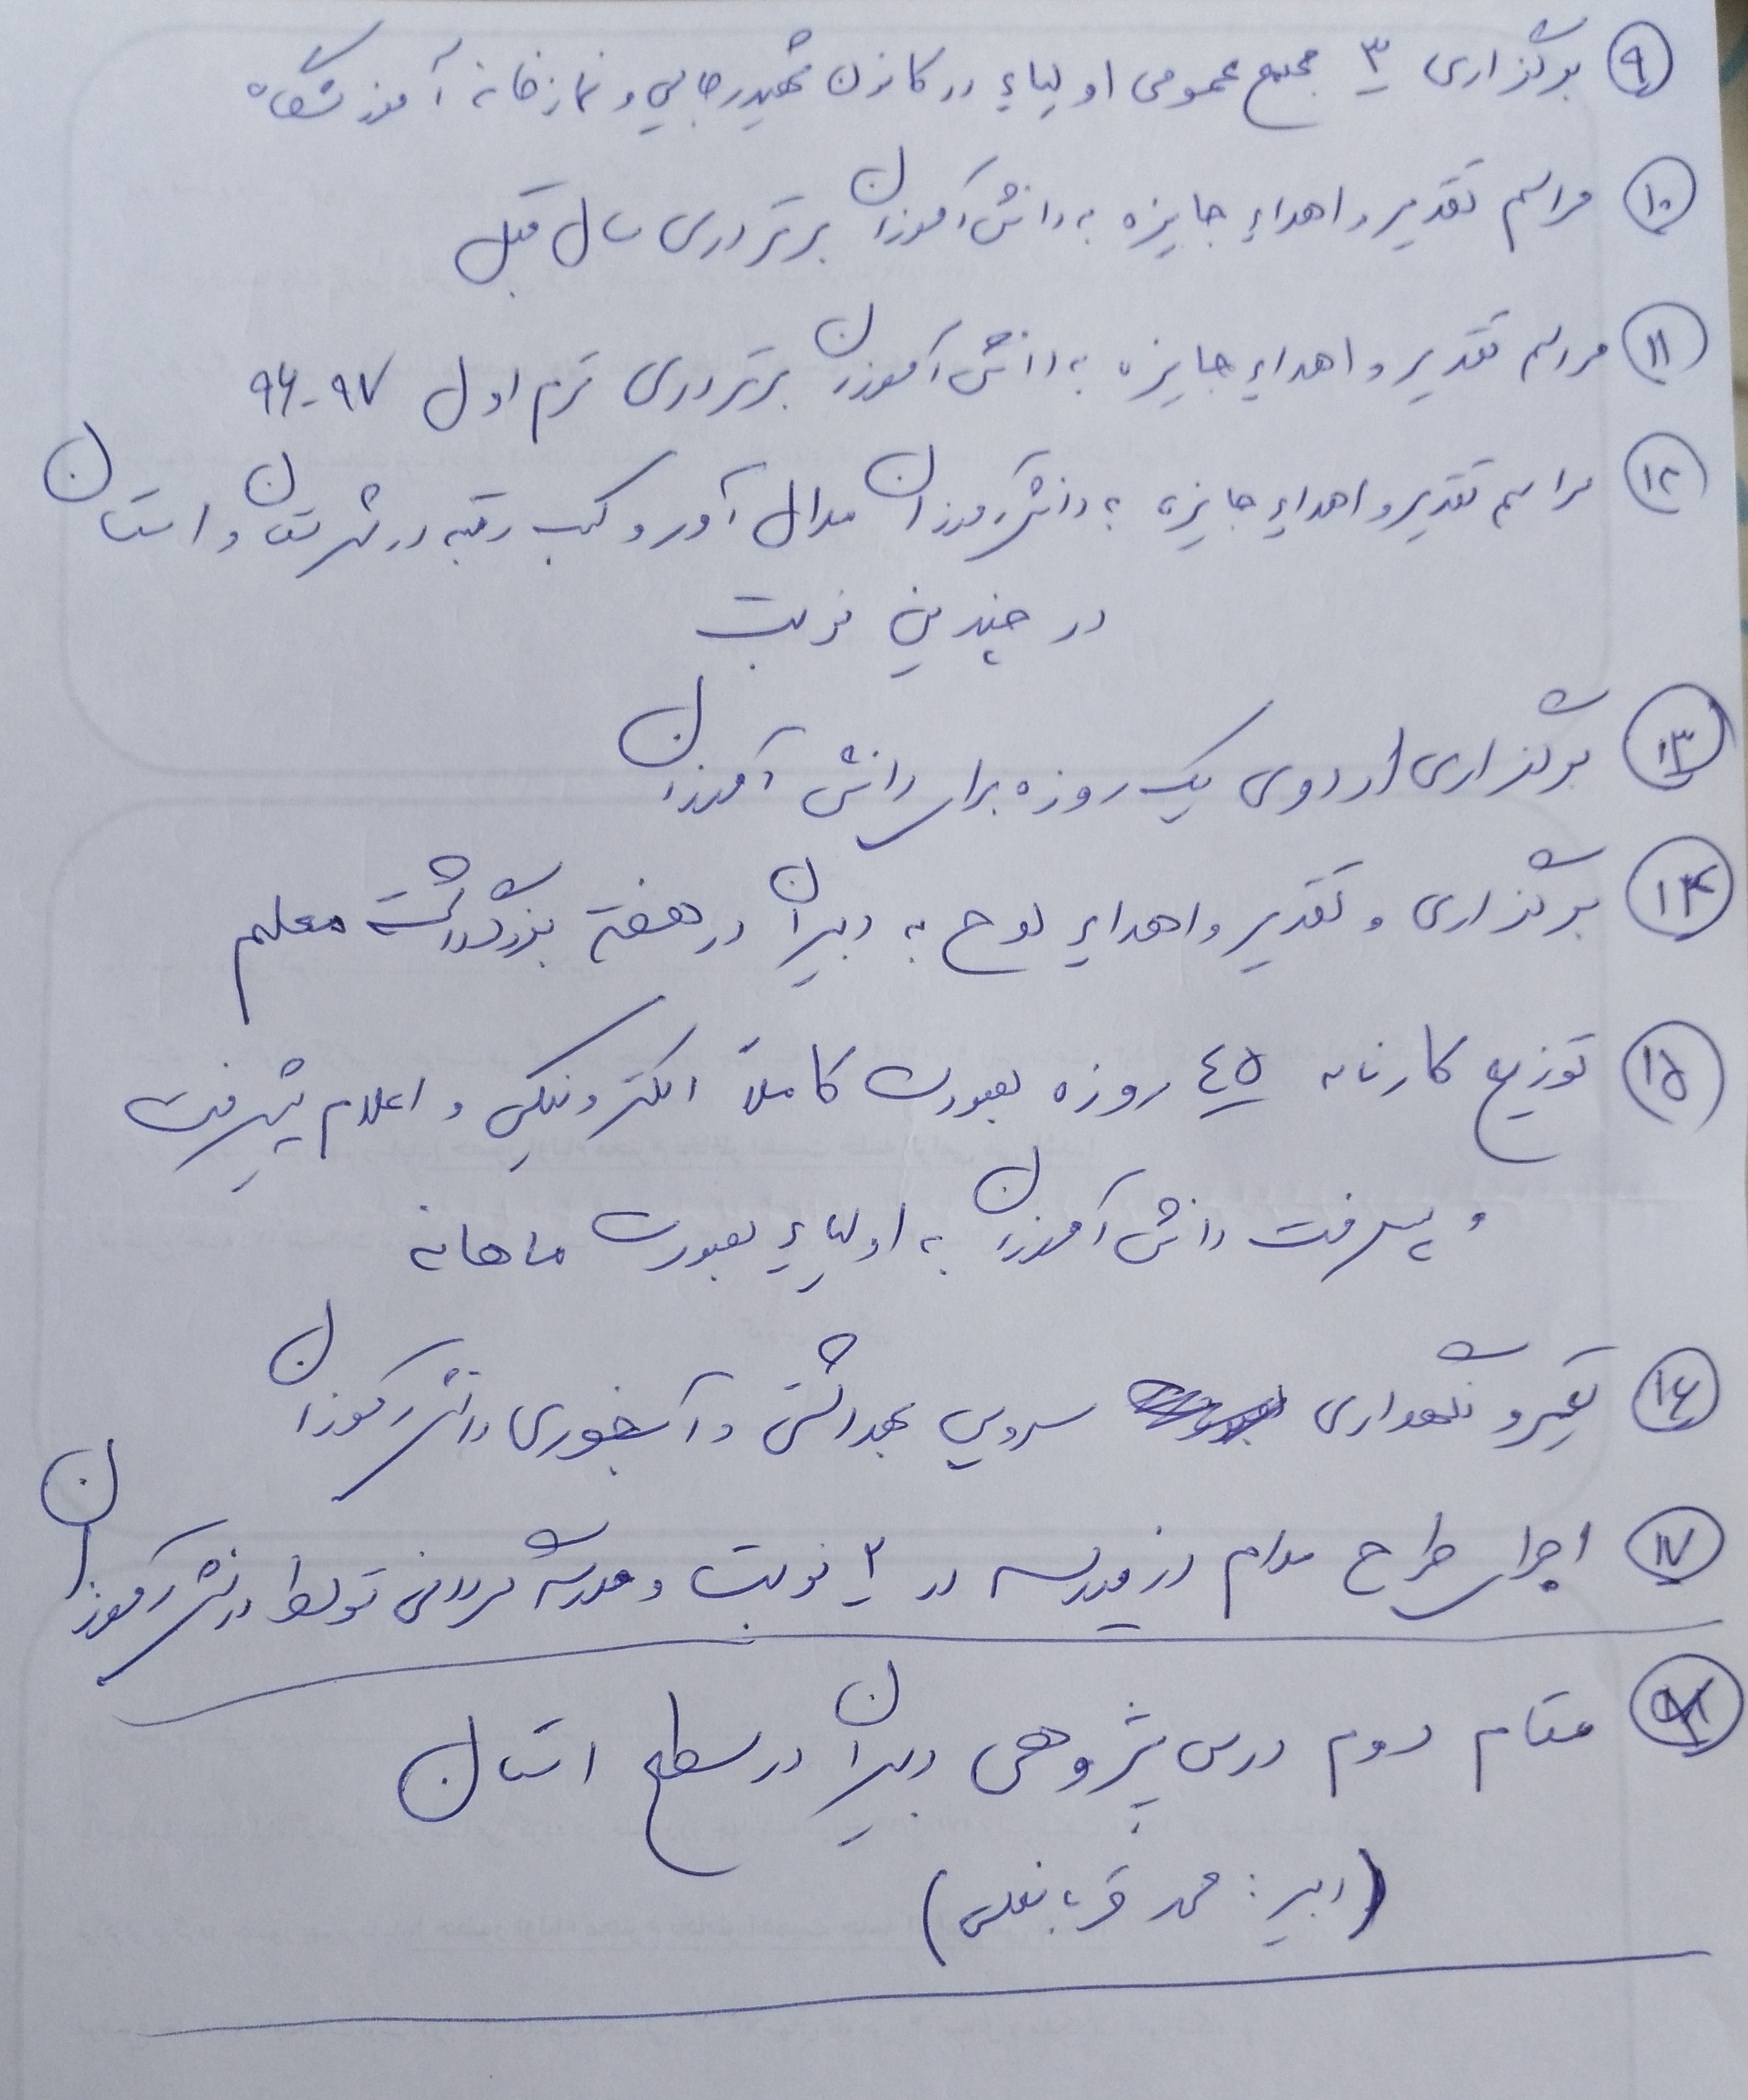 ۹ برگزاری ۳ مجمع عمومی اولیاء در کانون شهید رجایی و نمازخانه آموزشگاه
۱۰ مراسم تقدیر و اهداء جایزه به دانش آموزان برتر درسی سال قبل
۱۱ مراسم تقدیر و اهداء جایزه به دانش آموزان برتر درسی ترم اول ۹۷-۹۶
۱۲ مراسم تقدیر و اهداء جایزه به دانش آموزان مدال آور و کسب رتبه در شهرستان و استان
در چندین نوبت
۱۳ برگزاری اردوی یک روزه برای دانش آموزان
۱۴ برگزاری و تقدیر و اهداء لوح به دبیران در هفته بزرگداشت معلم
۱۵ توزیع کارنامه ٤٥ روزه بصورت کاملاً الکترونیکی و اعلام پیشرفت
و پسرفت دانش آموزان به اولیاء بصورت ماهانه
۱۶ تعمیر و نگهداری سرویس بهداشتی و آبخوری دانش آموزان
۱۷ اجرای طرح مدام در مدرسه در ۲ نوبت و مدرسه گردانی توسط دانش آموزان
مقام دوم درس پژوهی دبیران در سطح استان
(دبیر: محمد قربانعلی)